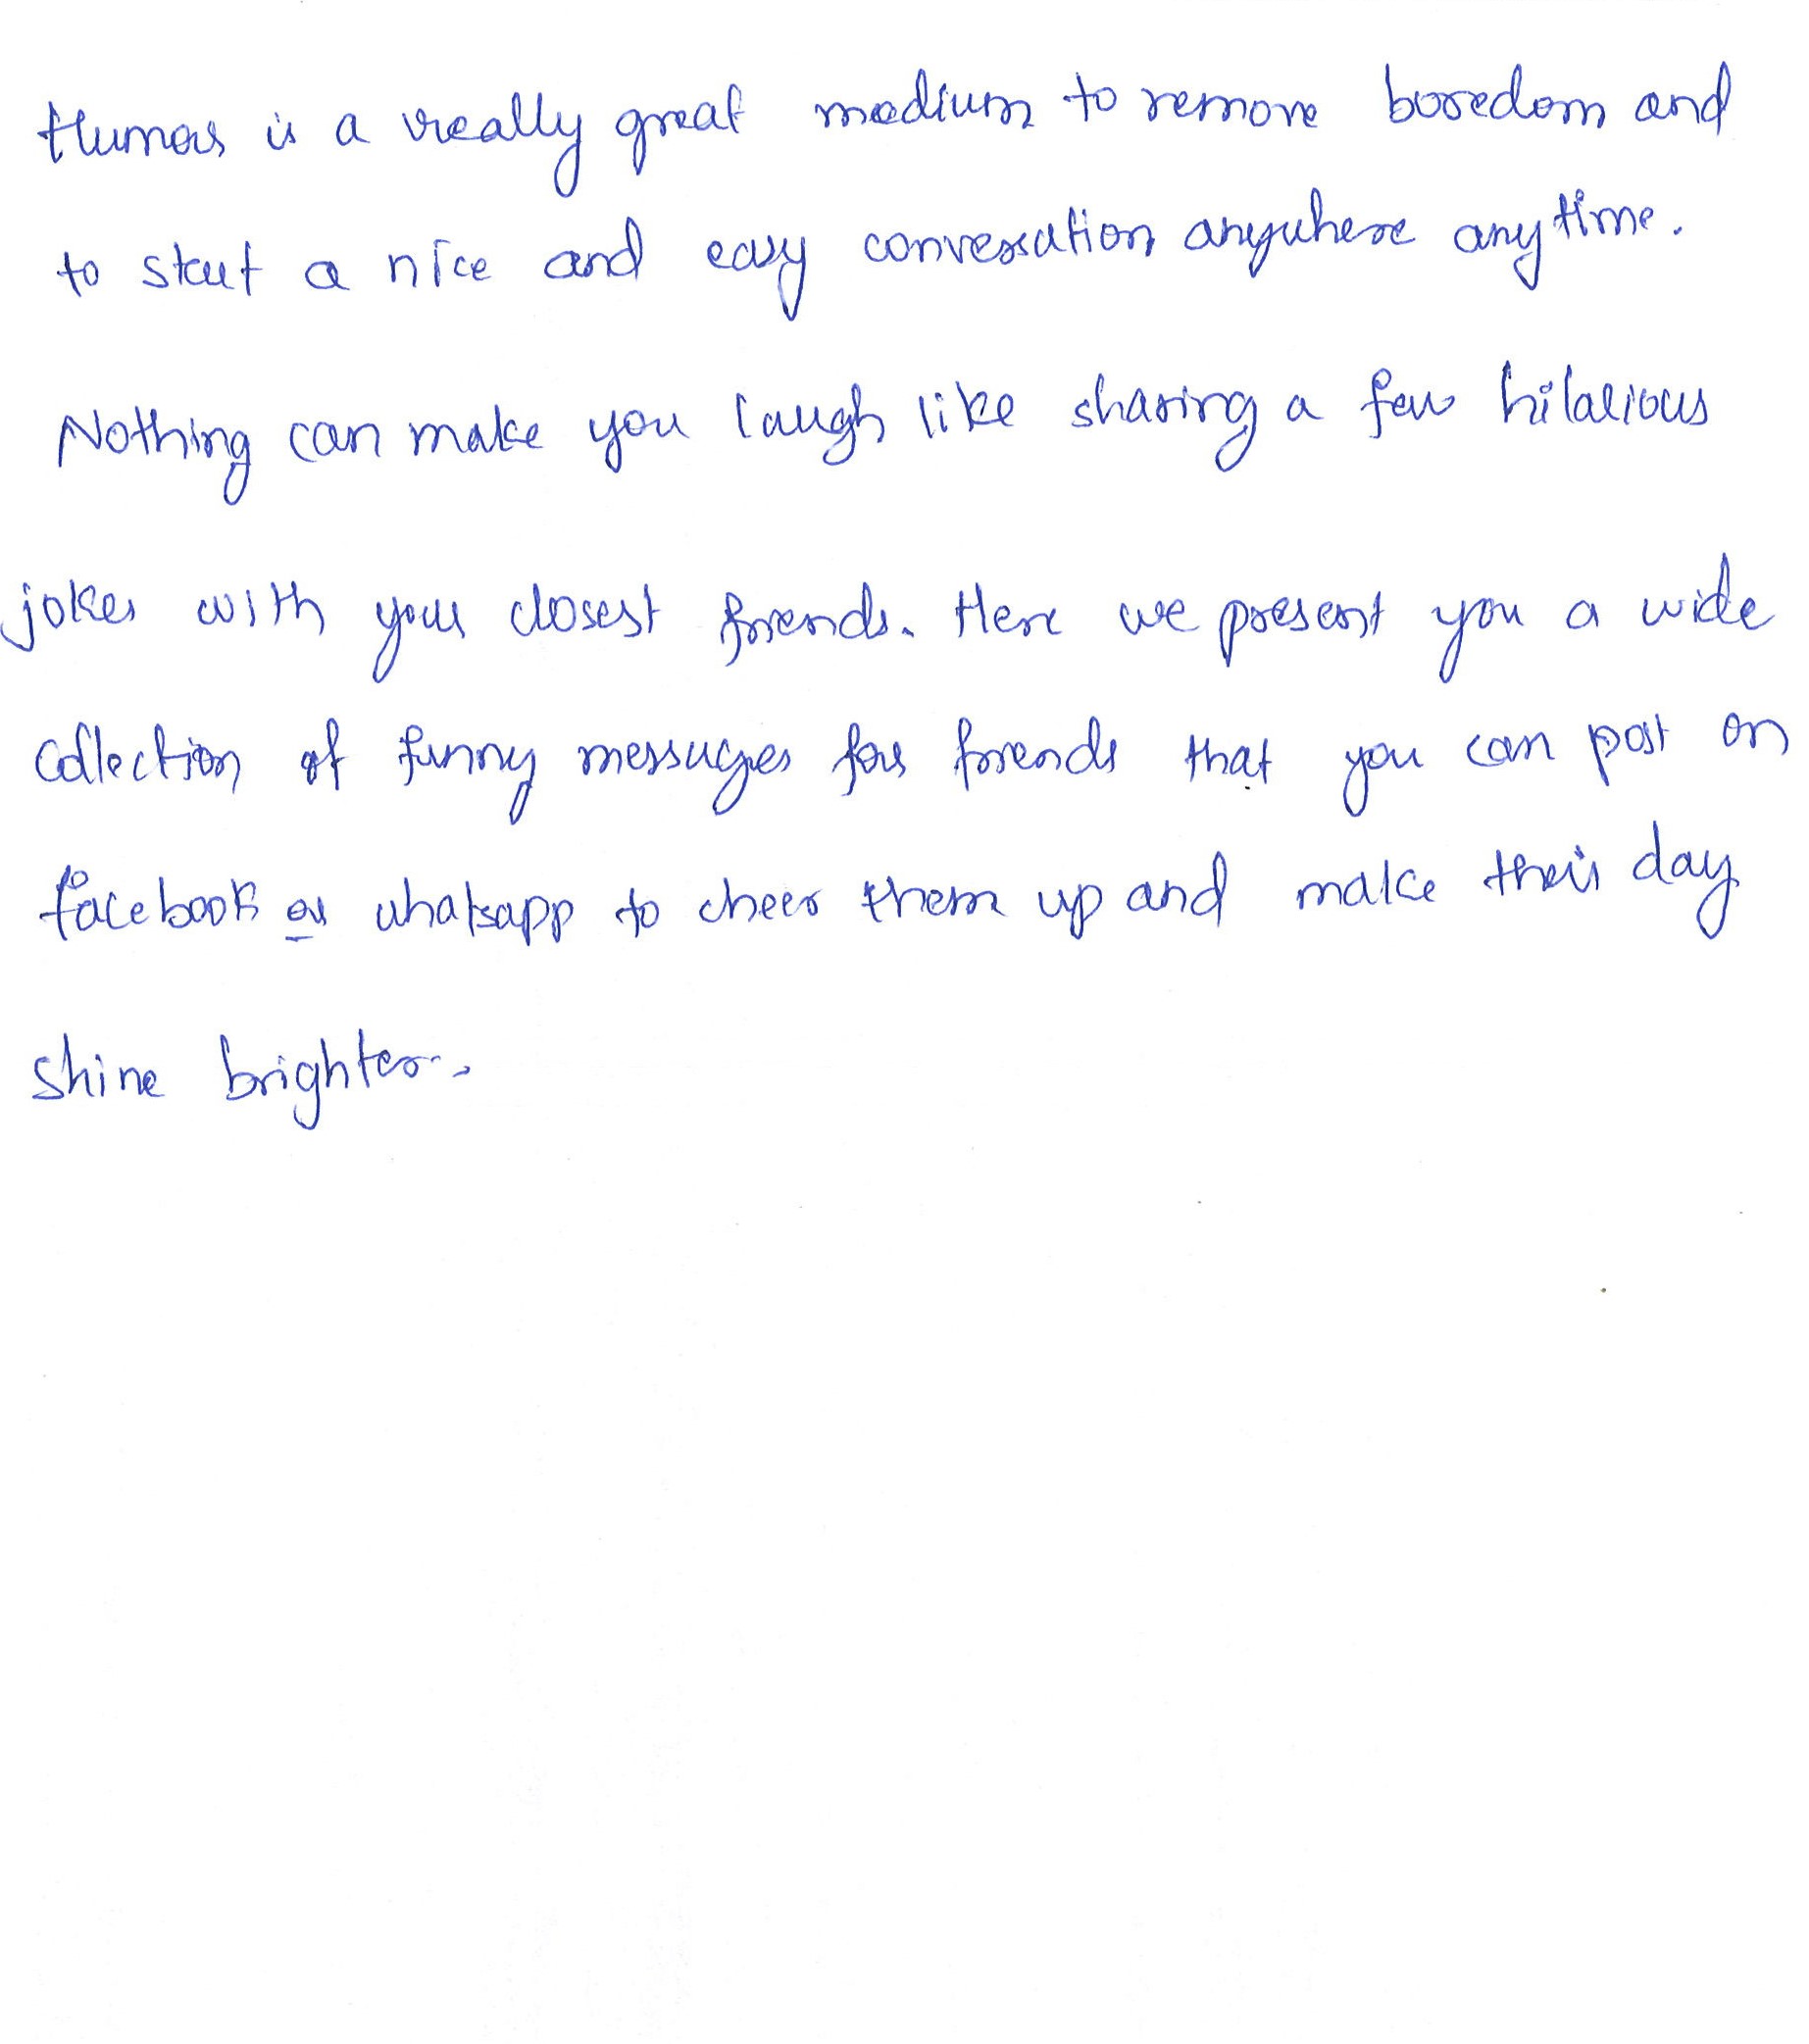 Humor is a really great medium to remove boredom and
to start a nice and easy conversation anywhere anytime.
Nothing can make you laugh like sharing a few hilarious
jokes with your closest friends. Here we present you a wide
collection of funny messages for friends that you can post on
facebook or whatsapp to cheer them up and make their day
shine brighter.